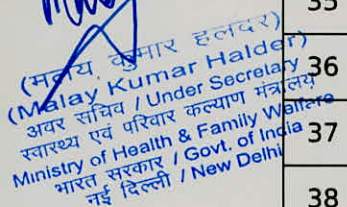 35
(मलय कुमार हलदर)
(Malay Kumar Halder)
अवर सचिव / Under Secretary
36
स्वास्थ्य एवं परिवार कल्याण मंत्रालय
Ministry of Health & Family Welfare
37
भारत सरकार / Govt. of India
नई दिल्ली / New Delhi
38